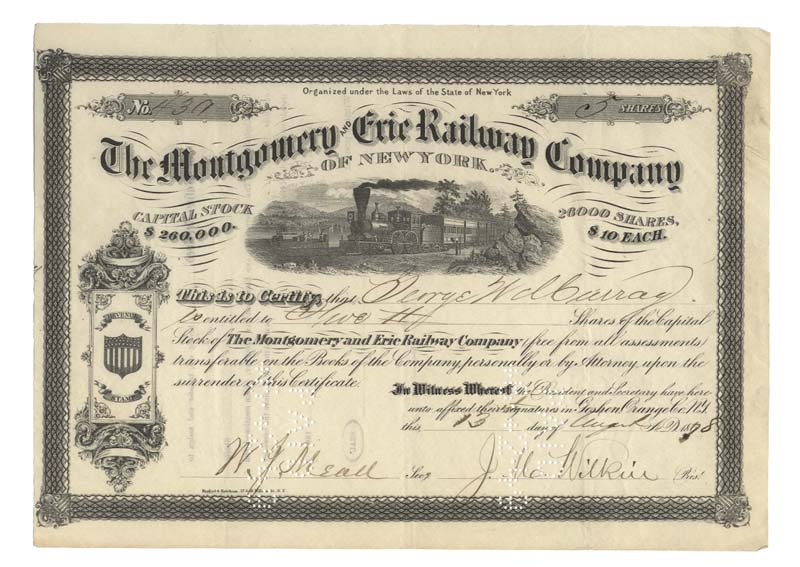 Organized under the Laws of the State of New York
No. 430
5 SHARES
The Montgomery AND Erie Railway Company
OF NEW YORK.
CAPITAL STOCK
$ 260,000.
26000 SHARES,
$ 10 EACH.
This is to Certify, that George W. McCurray
is entitled to Five Shares of the Capital
Stock of The Montgomery and Erie Railway Company (free from all assessments)
transferable on the Books of the Company, personally or by Attorney upon the
surrender of this Certificate.
REVENUE
STAMP
In Witness Whereof the President and Secretary have here
unto affixed their signatures in Goshen Orange Co. N.Y.
this 13 day of August A.D. 1878
W. J. Secy
J. Wilkin Pres.